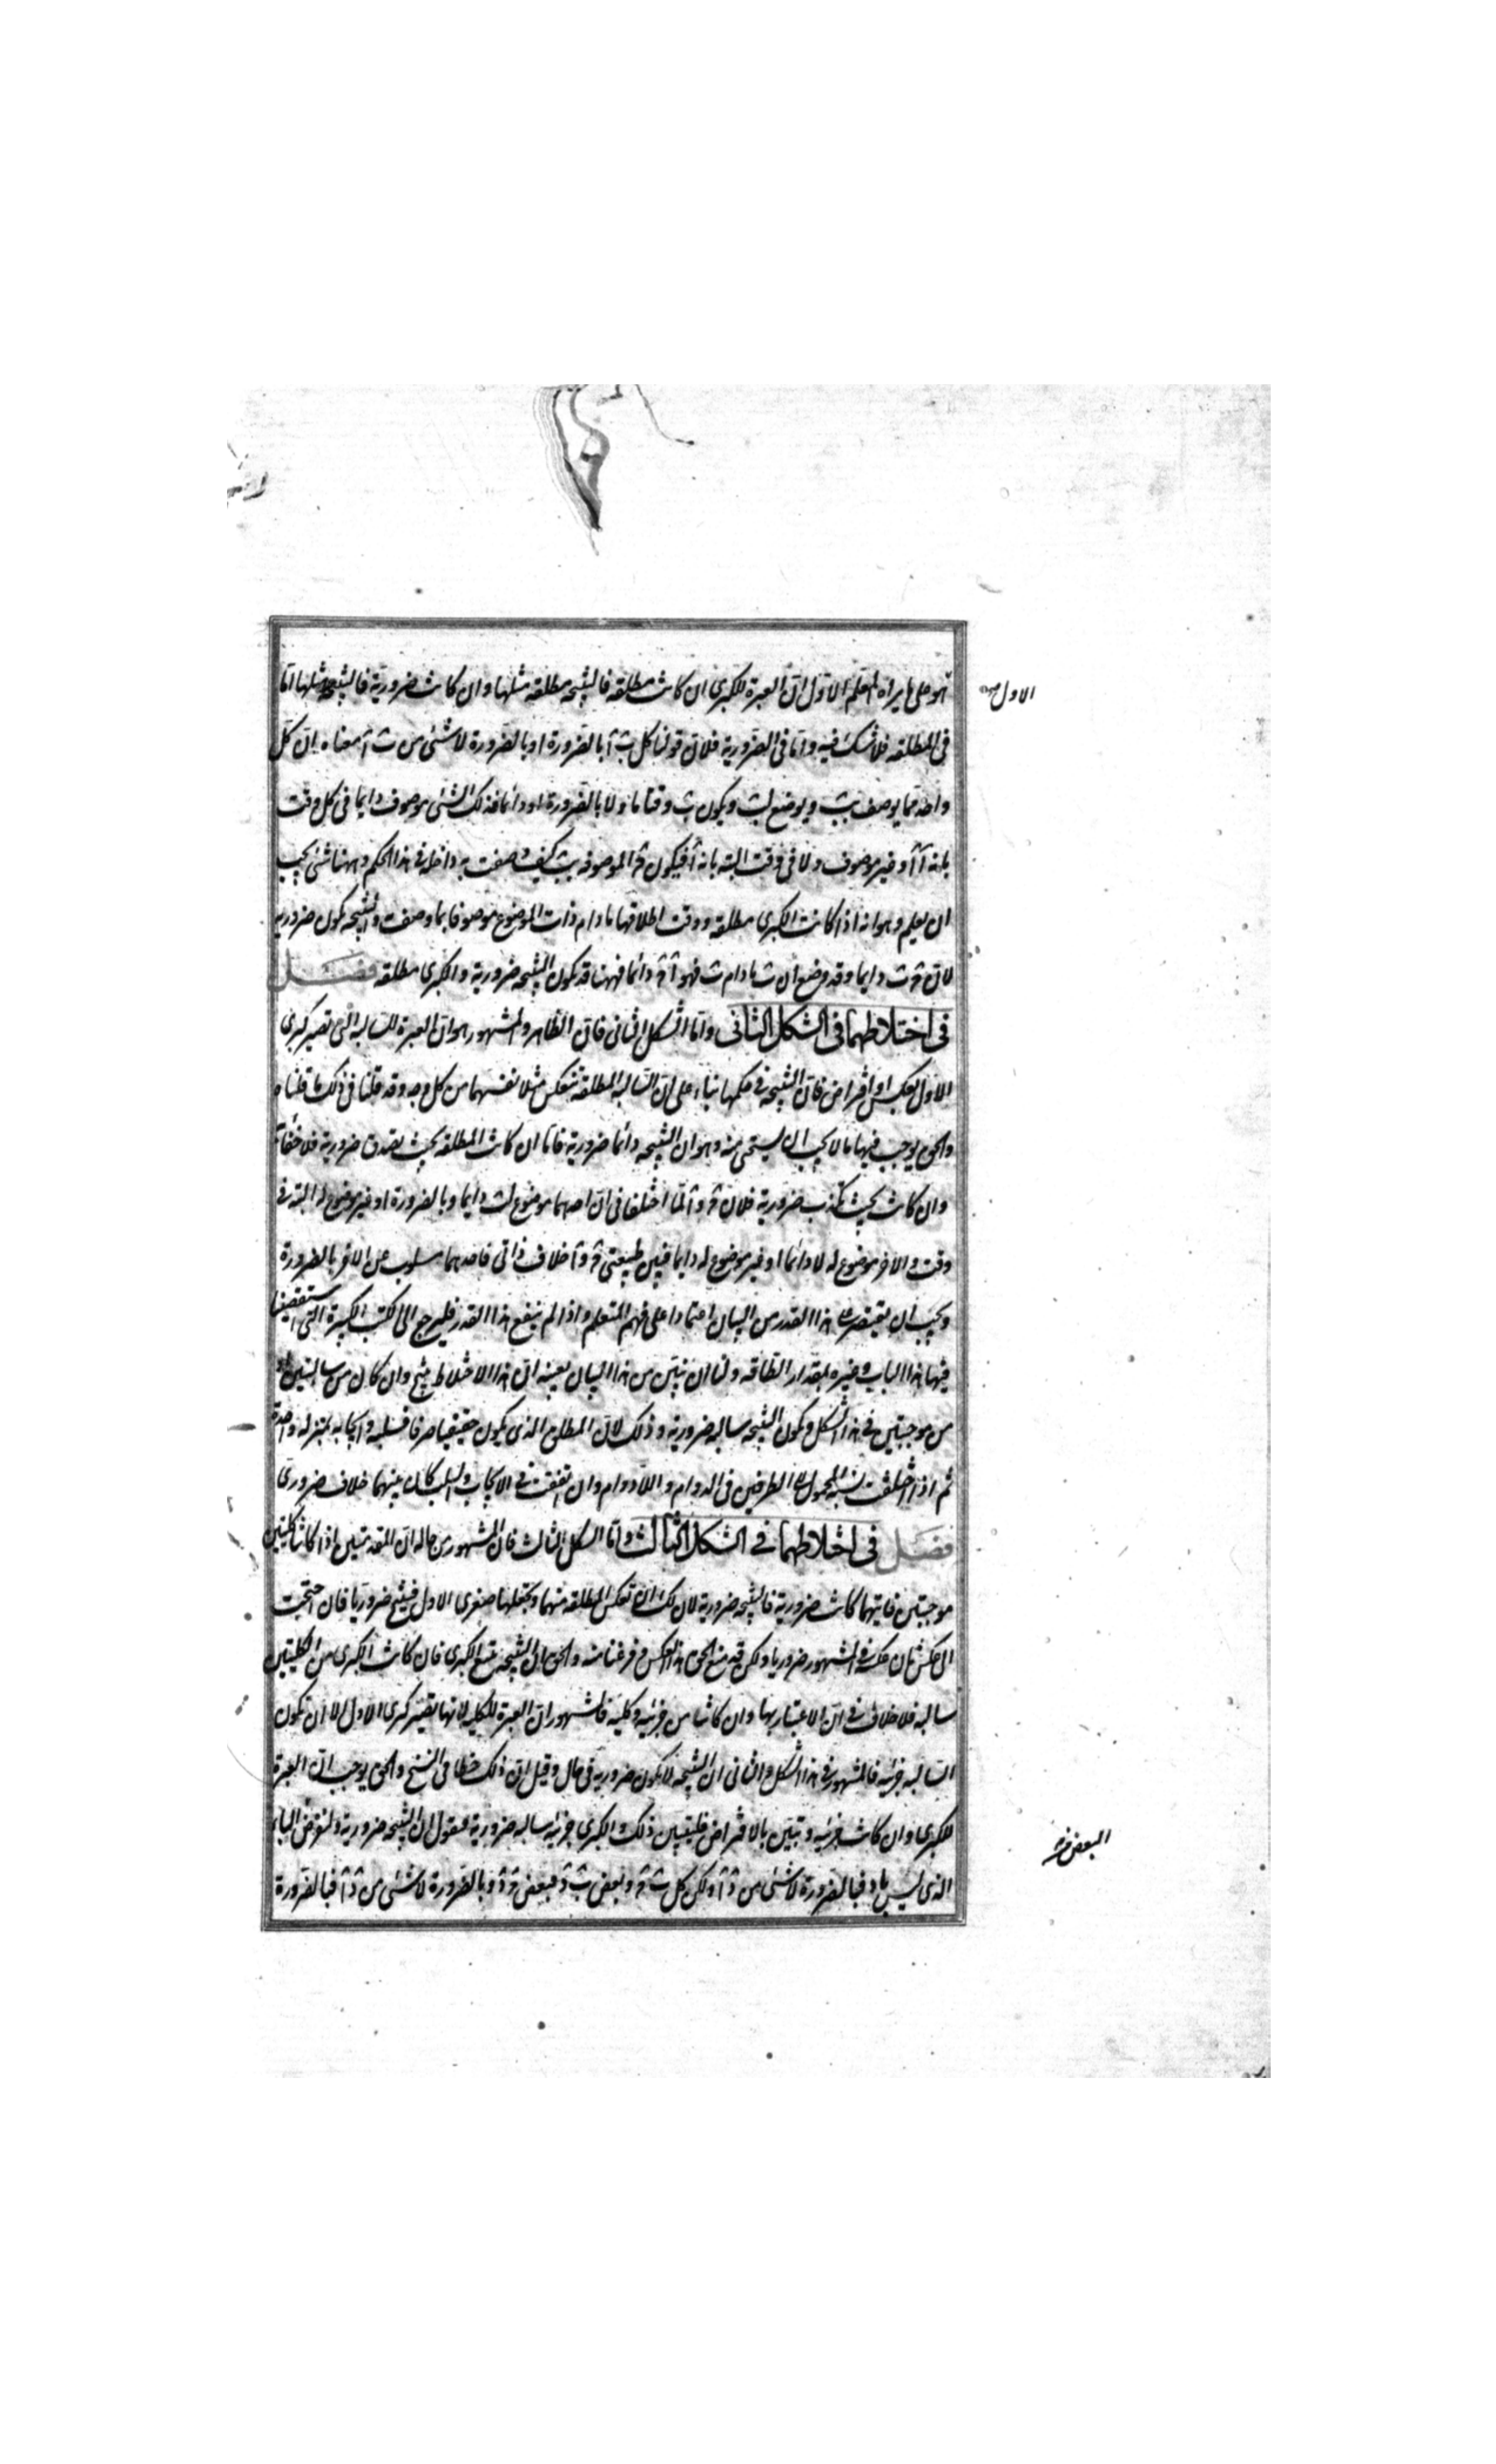 هو على ما يراه المعلم الاول ان العبرة للكبرى ان كانت مطلقه فالنتيجه مطلقه مثلها وان كانت ضرورية فالنتيجه مثلها اما
الاول صح
فى المطلقه فلا شك فيه واما فى الضرورية فلان قولنا كل ب آ بالضرورة او بالضرورة لا شئ من ب آ معناه ان كل
واحد مما يوصف بب ويوضع لب ويكون ب وقتا ما ولا بالضرورة او دائما فذلك الشئ موصوف دايما فى كل وقت
بانه آ او غير موصوف ولا فى وقت البته بانه آ فيكون ج الموصوفه بب كيف وصفت به داخله فى هذا الحكم وههنا شئ يجب
ان يعلم وهو انه اذا كانت الكبرى مطلقه ووقت اطلاقها ما دام ذات الموضوع موصوفا بما وصفت والنتيجه تكون ضرورية
لان ج ب دايما وقد وضع ان ب ما دام ب فهو آ فج دائما فههنا قد تكون النتيجه ضرورية والكبرى مطلقه فصل
فى اختلاطهما فى الشكل الثانى واما الشكل الثانى فان الظاهر والمشهور هو ان العبرة للسالبه التى تصير كبرى
الاول بعكس او افتراض فان النتيجه فى حكمها بناء على ان السالبه المطلقه تنعكس مثل نفسها من كل وجه وقد قلنا فى ذلك ما قلناه
والحق يوجب فيها ما لا يجب ان يستحى منه وهو ان النتيجه دائما ضرورية فاما ان كانت المطلقه بحيث يصدق ضرورية فلا خفاء
وان كانت بحيث تكذب ضرورية فلان ج و آ لما اختلفا فى ان احدهما موضوع لب دايما وبالضرورة او غير موضوع له البته فى
وقت والاخر موضوع له لا دائما او غير موضوع له دايما فبين طبيعتى ج و آ خلاف ذاتى فاحدهما مسلوب عن الاخر بالضرورة
ويجب ان يقتصر على هذا القدر من البيان اعتمادا على فهم المتعلم واذا لم ينفع هذا القدر فليرجع الى الكتب الكبيرة التى استقصينا
فيها هذا الباب وغيره بمقدار الطاقه ولنا ان نبين من هذا البيان بعينه ان هذا الاختلاط ينتج وان كان من سالبتين او
من موجبتين فى هذا الشكل وتكون النتيجه سالبه ضرورية وذلك لان المطلق الذى يكون حقيقيا صرفا فسلبه وايجابه بمنزله واحدة
ثم اذا اختلفت نسبة المحمول الى الطرفين فى الدوام واللادوام وان اتفقت فى الايجاب والسلب كان بينهما خلاف ضرورى
فصل فى اختلاطهما فى الشكل الثالث واما الشكل الثالث فان المشهور من حاله ان المقدمتين اذا كانتا كليتين
موجبتين فايتهما كانت ضرورية فالنتيجه ضرورية لان لك ان تعكس المطلقه منهما وتجعلها صغرى الاول فينتج ضروريا فان احتجت
الى عكس ثان عكس فى المشهور ضروريا ولكن قد منع الحق هذا العكس وفرغنا منه والحق ان النتيجه تتبع الكبرى فان كانت الكبرى من الكليتين
سالبه فلا خلاف فى ان الاعتبار بها وان كانتا من جزئيه وكليه فالمشهور ان العبرة للكليه لانها تصير كبرى الاول الا ان تكون
السالبه جزئيه فالمشهور فى هذا الشكل والثانى ان النتيجه لا تكون ضرورية فى حال وقيل ان ذلك خطا فى النسخ والحق يوجب ان العبرة
للكبرى وان كانت جزئيه وتبين بالافتراض فليتبين ذلك والكبرى جزئيه سالبه ضرورية فنقول ان النتيجه ضرورية ولنفرض الباء
البعض
الذى ليس با د فبالضرورة لا شئ من د آ ولكن كل ب ج وبعض ب د فبعض ج د وبالضرورة لا شئ من د آ فبالضرورة